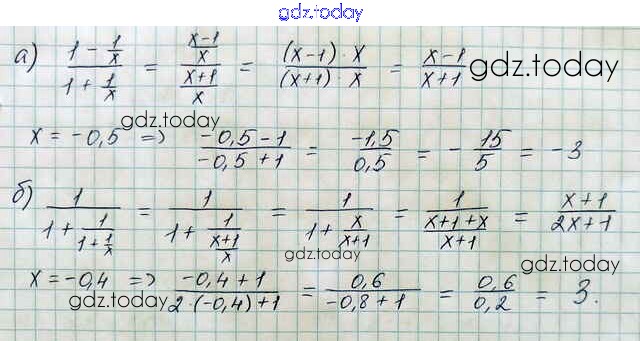 gdz.today
а) (1 - 1/x)/(1 + 1/x) = ((x-1)/x)/((x+1)/x) = ((x-1)·x)/((x+1)·x) = (x-1)/(x+1) gdz.today
gdz.today
x = -0,5 => (-0,5-1)/(-0,5+1) = (-1,5)/(0,5) = - 15/5 = -3
б) 1/(1 + 1/(1 + 1/x)) = 1/(1 + 1/((x+1)/x)) = 1/(1 + x/(x+1)) = 1/((x+1+x)/(x+1)) = (x+1)/(2x+1)
gdz.today
x = -0,4 => (-0,4+1)/(2·(-0,4)+1) = (0,6)/(-0,8+1) = (0,6)/(0,2) = 3.
gdz.today gdz.today